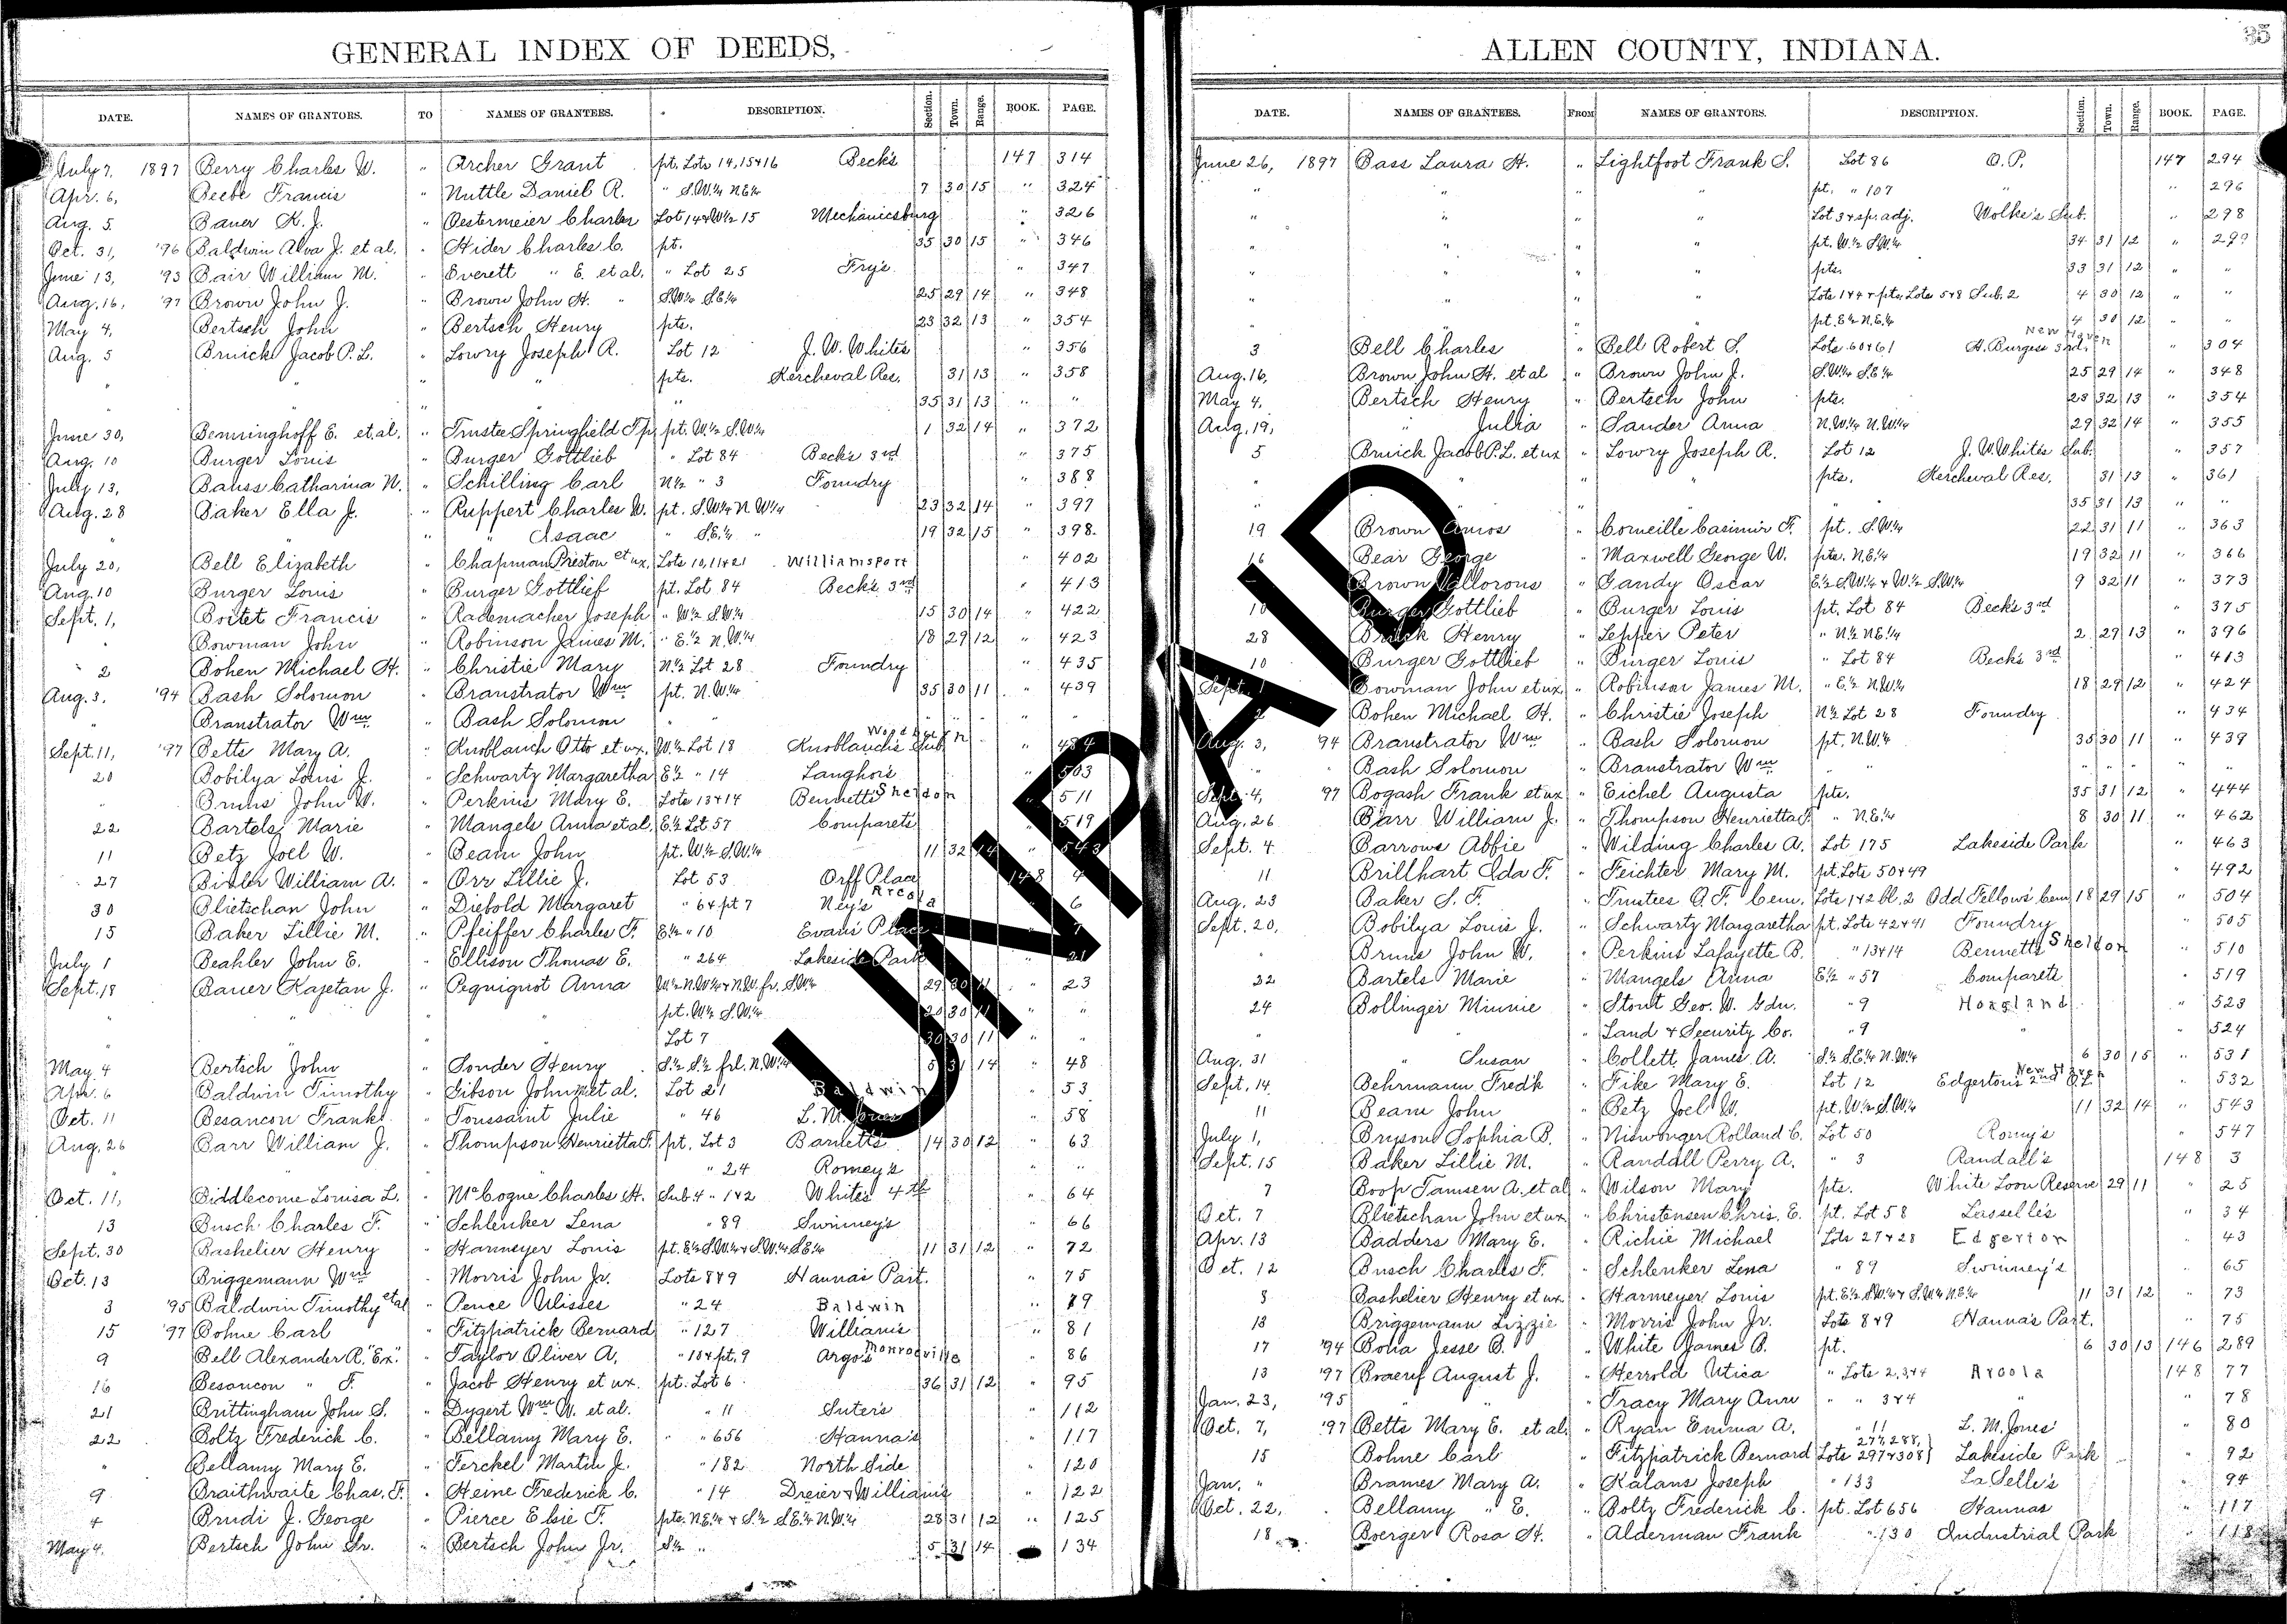 GENERAL INDEX OF DEEDS,
DATE. NAMES OF GRANTORS. TO NAMES OF GRANTEES. DESCRIPTION. Section. Town. Range. BOOK. PAGE.
July 7, 1897 Berry Charles W. " Archer Grant pt. Lots 14, 15+16 Beck's 147 314
Apr. 6, Beebe Francis " Nuttle Daniel R. " S.W.¼ N.E.¼ 7 30 15 " 324
Aug. 5 Bauer K. J. " Oestermeier Charles Lot 14+W½ 15 Mechanicsburg " 326
Oct. 31, '96 Baldwin Alva J. et al. " Hider Charles C. pt. 35 30 15 " 346
June 13, '93 Bair William M. " Everett " E. et al. " Lot 25 Fry's " 347
Aug. 16, '97 Brown John J. " Brown John H. " S.W.¼ S.E.¼ 25 29 14 " 348
May 4, Bertsch John " Bertsch Henry pts. 23 32 13 " 354
Aug. 5 Bruick Jacob P. L. " Lowry Joseph A. Lot 12 J. W. Whites " 356
" " " " pts. Kercheval Res. 31 13 " 358
" " " " " 35 31 13 " "
June 30, Benninghoff E. et al. " Trustee Springfield Tp. pt. W.½ S.W.¼ 1 32 14 " 372
Aug. 10 Burger Louis " Burger Gottlieb " Lot 84 Beck's 3rd " 375
July 13, Bauss Catharina N. " Schilling Carl N½ " 3 Foundry " 388
Aug. 28 Baker Ella J. " Ruppert Charles W. pt. S.W¼ N.W¼ 23 32 14 " 397
" " " Isaac " S.E.¼ " 19 32 15 " 398
July 20, Bell Elizabeth " Chapman Preston et ux. Lots 10, 11+21 Williamsport " 402
Aug. 10 Burger Louis " Burger Gottlief pt. Lot 84 Beck's 3rd " 413
Sept. 1, Boitet Francis " Rademacher Joseph " W.½ S.W.¼ 15 30 14 " 422
" Bowman John " Robinson James M. " E.½ N.W.¼ 18 29 12 " 423
" 2 Bohen Michael H. " Christie Mary N½ Lot 28 Foundry " 435
Aug. 3. '94 Bash Solomon " Branstrator Wm pt. N.W.¼ 35 30 11 " 439
" Branstrator Wm " Bash Solomon " " " "
Sept. 11, '97 Betts Mary A. " Knoblauch Otto et ux. W.½ Lot 18 Knoblauch's Sub. " 484
20 Bobilya Louis J. " Schwartz Margaretha E½ " 14 Langhor's " 503
" Bruns John W. " Perkins Mary E. Lots 13+14 Bennetts Sheldon " 511
22 Bartels Marie " Mangels Anna et al. E.½ Lot 57 Comparets " 519
11 Betz Joel W. " Beam John pt. W.½ S.W.¼ 11 32 14 " 543
27 Bixler William A. " Orr Lillie J. Lot 53 Orff Place 148 4
30 Blietschan John " Diebold Margaret " 6+pt 7 Ney's Arcola " 6
15 Baker Lillie M. " Pfeiffer Charles F. E½ " 10 Evans Place " 7
July 1 Beahler John E. " Ellison Thomas E. " 264 Lakeside Park " 21
Sept. 18 Bauer Kajetan J. " Pequignot Anna 29 30 11 " 23
" " " pt. W½ S.W.¼ 20 30 11 " "
" " " Lot 7 30 30 11 " "
May 4 Bertsch John " Sonder Henry S.½ S.½ frl. N.W.¼ 5 31 14 " 48
Apr. 6 Baldwin Timothy " Gibson John et al. Lot 21 Baldwin " 53
Oct. 11 Besancon Frank " Toussaint Julie " 46 L. M. Jones " 58
Aug. 26 Barr William J. " Thompson Henrietta F. pt. Lot 3 Barnetts 14 30 12 " 63
" " 24 Romey's " "
Oct. 11, Biddlecome Louisa L. " McCogne Charles H. Sub 4 " 1+2 White's 4th " 64
13 Busch Charles F. " Schlenker Lena " 89 Swinney's " 66
Sept. 30 Bashelier Henry " Harmeyer Louis pt. E½ S.W.¼ + S.W.¼ S.E.¼ 11 31 12 " 72
Oct. 13 Briggemann Wm " Morris John Jr. Lots 8+9 Hanna's Part. " 75
3 '95 Baldwin Timothy et al " Pence Ulisses " 24 Baldwin " 79
15 '97 Bohne Carl " Fitzpatrick Bernard " 127 Williams " 81
9 Bell Alexander R. "Ex." " Taylor Oliver A. " 10+pt. 9 Argo's Monroeville " 86
16 Besancon " F. " Jacob Henry et ux. pt. Lot 6 36 31 12 " 95
21 Brittingham John S. " Dygert Wm W. et al. " 11 Suter's " 112
22 Boltz Frederick C. " Bellamy Mary E. " 656 Hanna's " 117
" Bellamy Mary E. " Ferckel Martin J. " 182 North Side " 120
9 Braithwaite Chas. F. " Heine Frederick C. " 14 Dreier & Williams " 122
4 Brudi J. George " Pierce Elsie F. pts. N.E.¼ + S.½ S.E.¼ N.W.¼ 28 31 12 " 125
May 4. Bertsch John Sr. " Bertsch John Jr. S½ " 5 31 14 134
ALLEN COUNTY, INDIANA.
35
DATE. NAMES OF GRANTEES. FROM NAMES OF GRANTORS. DESCRIPTION. Section. Town. Range. BOOK. PAGE.
June 26, 1897 Bass Laura H. " Lightfoot Frank S. Lot 86 O. P. 147 294
" " " " pt. " 107 " " 296
" " " " Lot 3+sp. adj. Wolke's Sub. " 298
" " " " pt. W.½ S.W.¼ 34 31 12 " 299
" " " " pts. 33 31 12 " "
" " " " Lots 1+4+pts. Lots 5+8 Sub. 2 4 30 12 " "
" " " " pt. E½ N.E.¼ 4 30 12 " "
3 Bell Charles " Bell Robert S. Lots 60+61 H. Burgess 3rd. New Haven " 304
Aug. 16, Brown John H. et al " Brown John J. S.W.¼ S.E.¼ 25 29 14 " 348
May 4, Bertsch Henry " Bertsch John pts. 23 32 13 " 354
Aug. 19, " Julia " Sander Anna N.W.¼ N.W.¼ 29 32 14 " 355
5 Bruick Jacob P. L. et ux " Lowry Joseph A. Lot 12 J. W. Whites Sub. " 357
" " " " pts. Kercheval Res. 31 13 " 361
" " " " " 35 31 13 " "
19 Brown Amos " Corneille Casimir F. pt. S.W.¼ 22 31 11 " 363
16 Bear George " Maxwell George W. pts. N.E.¼ 19 32 11 " 366
Brown Vallorous " Gandy Oscar E.½ S.W.¼ + W.½ S.W.¼ 9 32 11 " 373
10 Burger Gottlieb " Burger Louis pt. Lot 84 Beck's 3rd " 375
28 Brick Henry " Lepper Peter " N.½ N.E.¼ 2 29 13 " 396
10 Burger Gottlieb " Burger Louis " Lot 84 Beck's 3rd " 413
Sept. 1 Bowman John et ux " Robinson James M. " E.½ N.W.¼ 18 29 12 " 424
2 Bohen Michael H. " Christie Joseph N½ Lot 28 Foundry " 434
Aug. 3, '94 Branstrator Wm " Bash Solomon pt. N.W.¼ 35 30 11 " 439
" Bash Solomon " Branstrator Wm " " " "
Sept. 4, '97 Bogash Frank et ux " Eichel Augusta pts. 35 31 12 " 444
Aug. 26 Barr William J. " Thompson Henrietta F. " N.E.¼ 8 30 11 " 462
Sept. 4 Barrows Abbie " Wilding Charles A. Lot 175 Lakeside Park " 463
11 Brillhart Ida F. " Feichter Mary M. pt. Lots 50+49 " 492
Aug. 23 Baker S. F. " Trustees O. F. Cem. Lots 1+2 bl. 2 Odd Fellows Cem 18 29 15 " 504
Sept. 20, Bobilya Louis J. " Schwartz Margaretha pt. Lots 42+41 Foundry " 505
" Bruns John W. " Perkins Lafayette B. " 13+14 Bennetts Sheldon " 510
22 Bartels Marie " Mangels Anna E½ " 57 Comparets " 519
24 Bollinger Minnie " Stout Geo. W. Gdn. " 9 Hoagland " 523
" " " Land & Security Co. " 9 " " 524
Aug. 31 " Susan " Collett James A. S.½ S.E.¼ N.W.¼ 6 30 15 " 531
Sept. 14 Behrmann Fred'k " Fike Mary E. Lot 12 Edgertons 2nd New Haven " 532
11 Beam John " Betz Joel W. pt. W.½ S.W.¼ 11 32 14 " 543
July 1, Bryson Sophia B. " Niswonger Rolland C. Lot 50 Romy's " 547
Sept. 15 Baker Lillie M. " Randall Perry A. " 3 Randall's 148 3
7 Boop Tamsen A. et al " Wilson Mary pts. White Loon Reserve 29 11 " 25
Oct. 7 Blietschan John et ux " Christensen Chris. E. pt. Lot 58 Lasselle's " 34
Apr. 13 Badders Mary E. " Richie Michael Lots 27+28 Edgerton " 43
Oct. 12 Busch Charles F. " Schlenker Lena " 89 Swinney's " 65
8 Bashelier Henry et ux. " Harmeyer Louis 11 31 12 " 73
13 Briggemann Lizzie " Morris John Jr. Lots 8+9 Hanna's Part. " 75
17 '94 Bolia Jesse B. " White James B. pt. 6 30 13 146 289
13 '97 Braeuf August J. " Herrold Utica " Lots 2,3+4 Arcola 148 77
Jan. 23, '95 " " " Tracy Mary Ann " " 3+4 " " 78
Oct. 7, '97 Betts Mary E. et al " Ryan Emma A. " 11 L. M. Jones " 80
15 Bohne Carl " Fitzpatrick Bernard Lots 277,288, 297+308 Lakeside Park " 92
Jan. " Brames Mary A. " Kalans Joseph " 133 La Selle's " 94
Oct. 22, Bellamy " E. " Boltz Frederick C. pt. Lot 656 Hannas " 117
18 Boerger Rosa H. " Alderman Frank " 130 Industrial Park " 118
UNPAID